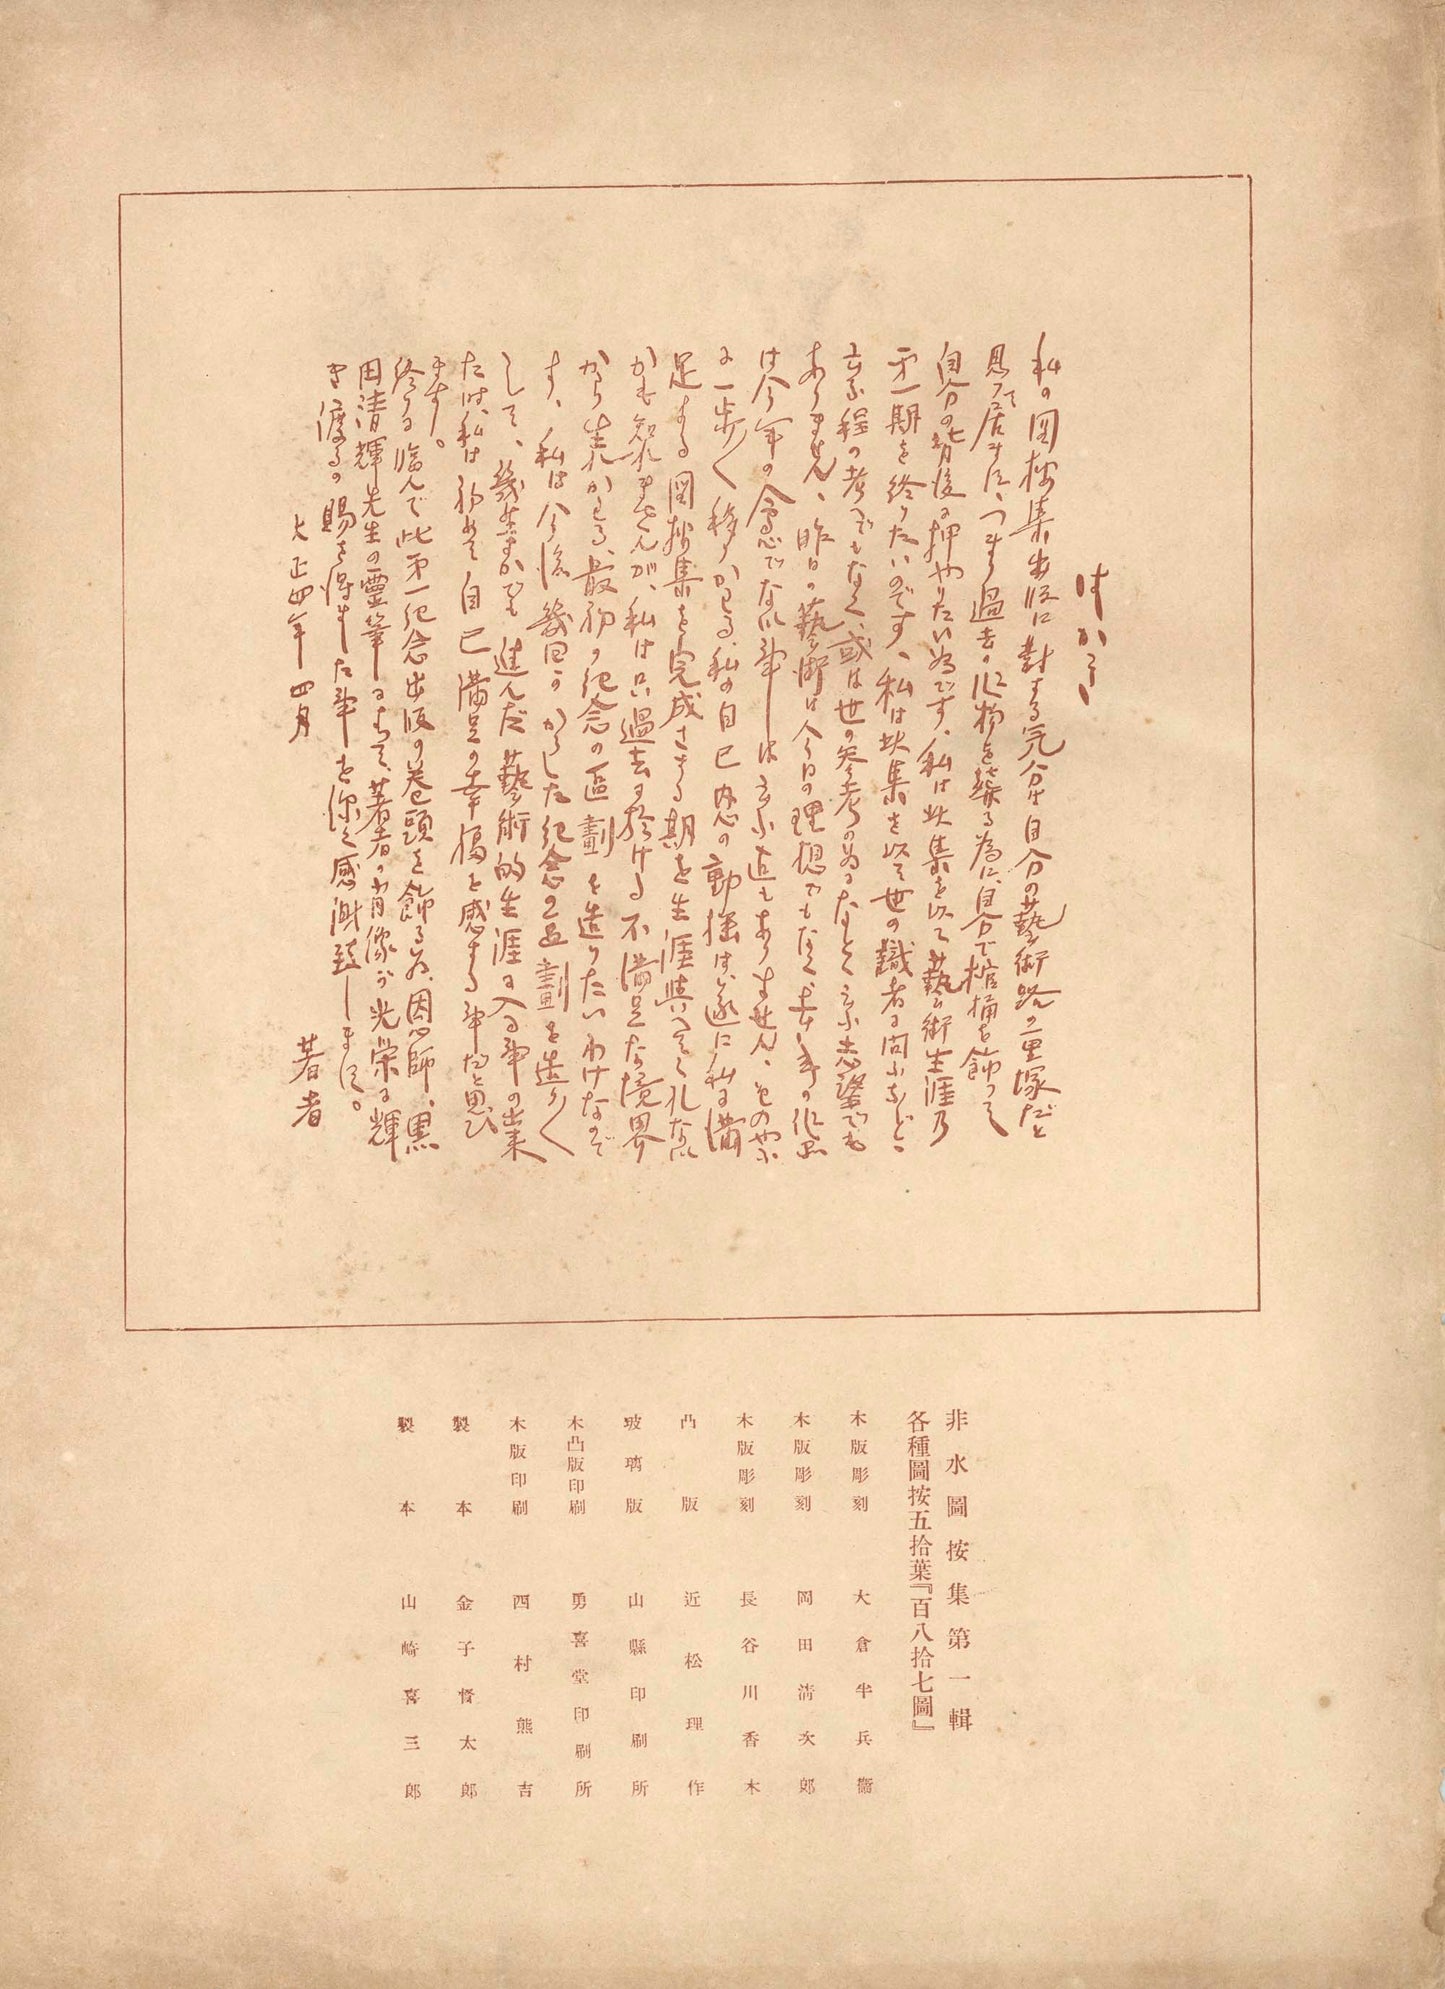 はしがき
私の図按集出版に対する気分は自分の藝術路の一里塚だと
思って居ます、つまり過去の作物を葬る為に、自分で棺桶を飾つて
自分の背後に押やりたい為です、私は此集を以て藝術生涯乃
第一期を終りたいのです、私は此集を以て世の識者に問ふなどゝ
云ふ程の考へでもなく、或は世の参考の為になどと云ふ志望でも
ありません、昨日の藝術は今日の理想でもなく、去年の作品
は今年の会心でない事は云ふ迄もありません、その
に一歩々々移りかはる、私の自己内心の動揺は、遂に私に満
足する図按集を完成させる期を生涯与へてくれない
かも知れませんが、私は只過去に於ける不満足な境界
から生れかはる、最初の紀念の区劃を造りたいわけなので
す、私は今後幾回かかうした紀念の区劃を造り
して、幾葉かでも進んだ藝術的生涯に入る事の出来
たは、私は初めて自己満足の幸福を感する事と思ひ
ます。
終りに臨んで此第一紀念出版の巻頭を飾る為、恩師、黒
田清輝先生の霊筆によつて、著者の肖像が光栄に輝
き渡るの賜を得ました事を深く感謝致します。
大正四年四月
著者
非水圖按集第一輯
各種圖按五拾葉『百八拾七圖』
木版彫刻 大倉半兵衞
木版彫刻 岡田清次郎
木版彫刻 長谷川香木
凸版 近松理作
玻璃版 山縣印刷所
木凸版印刷 勇喜堂印刷所
木版印刷 西村熊吉
製本 金子督太郎
製本 山崎喜三郎